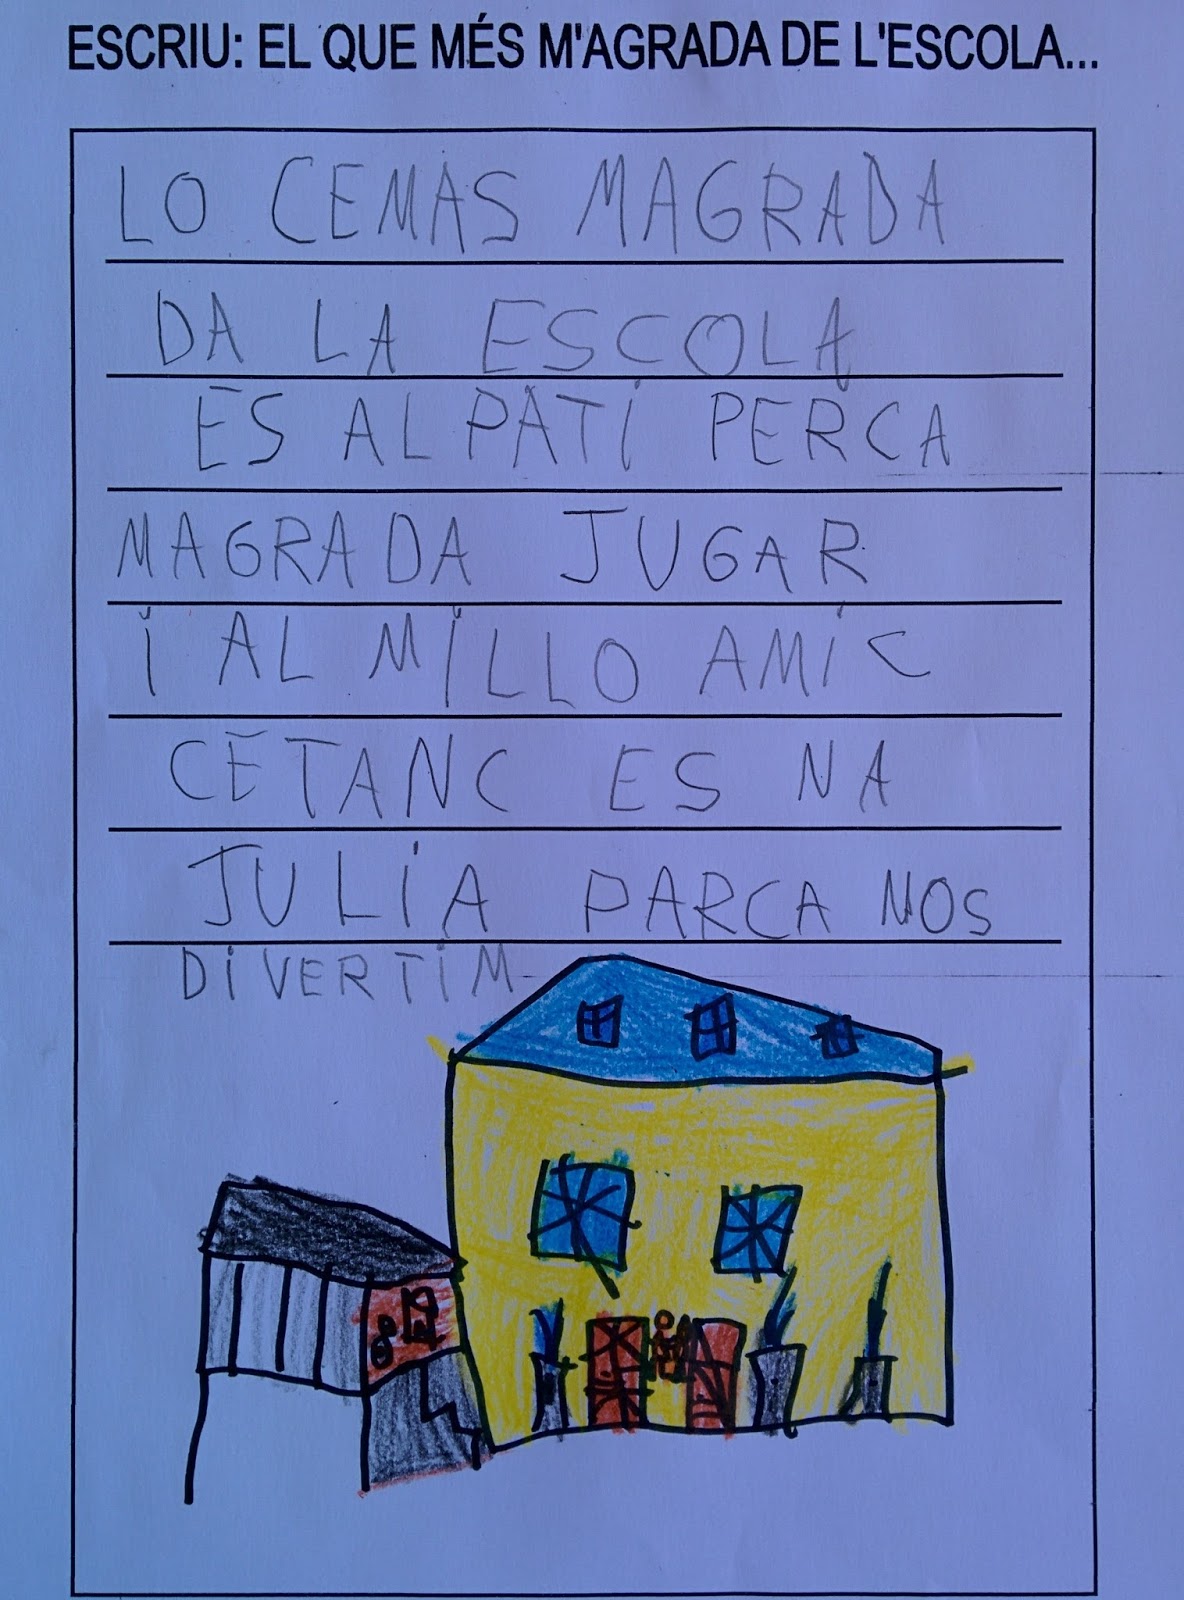 ESCRIU: EL QUE MÉS M'AGRADA DE L'ESCOLA...
LO CEMAS MAGRADA
DA LA ESCOLA
ES AL PATI PERCA
MAGRADA JUGAR
I AL MILLO AMIC
CETANC ES NA
JULIA PARCA NOS
DIVERTIM